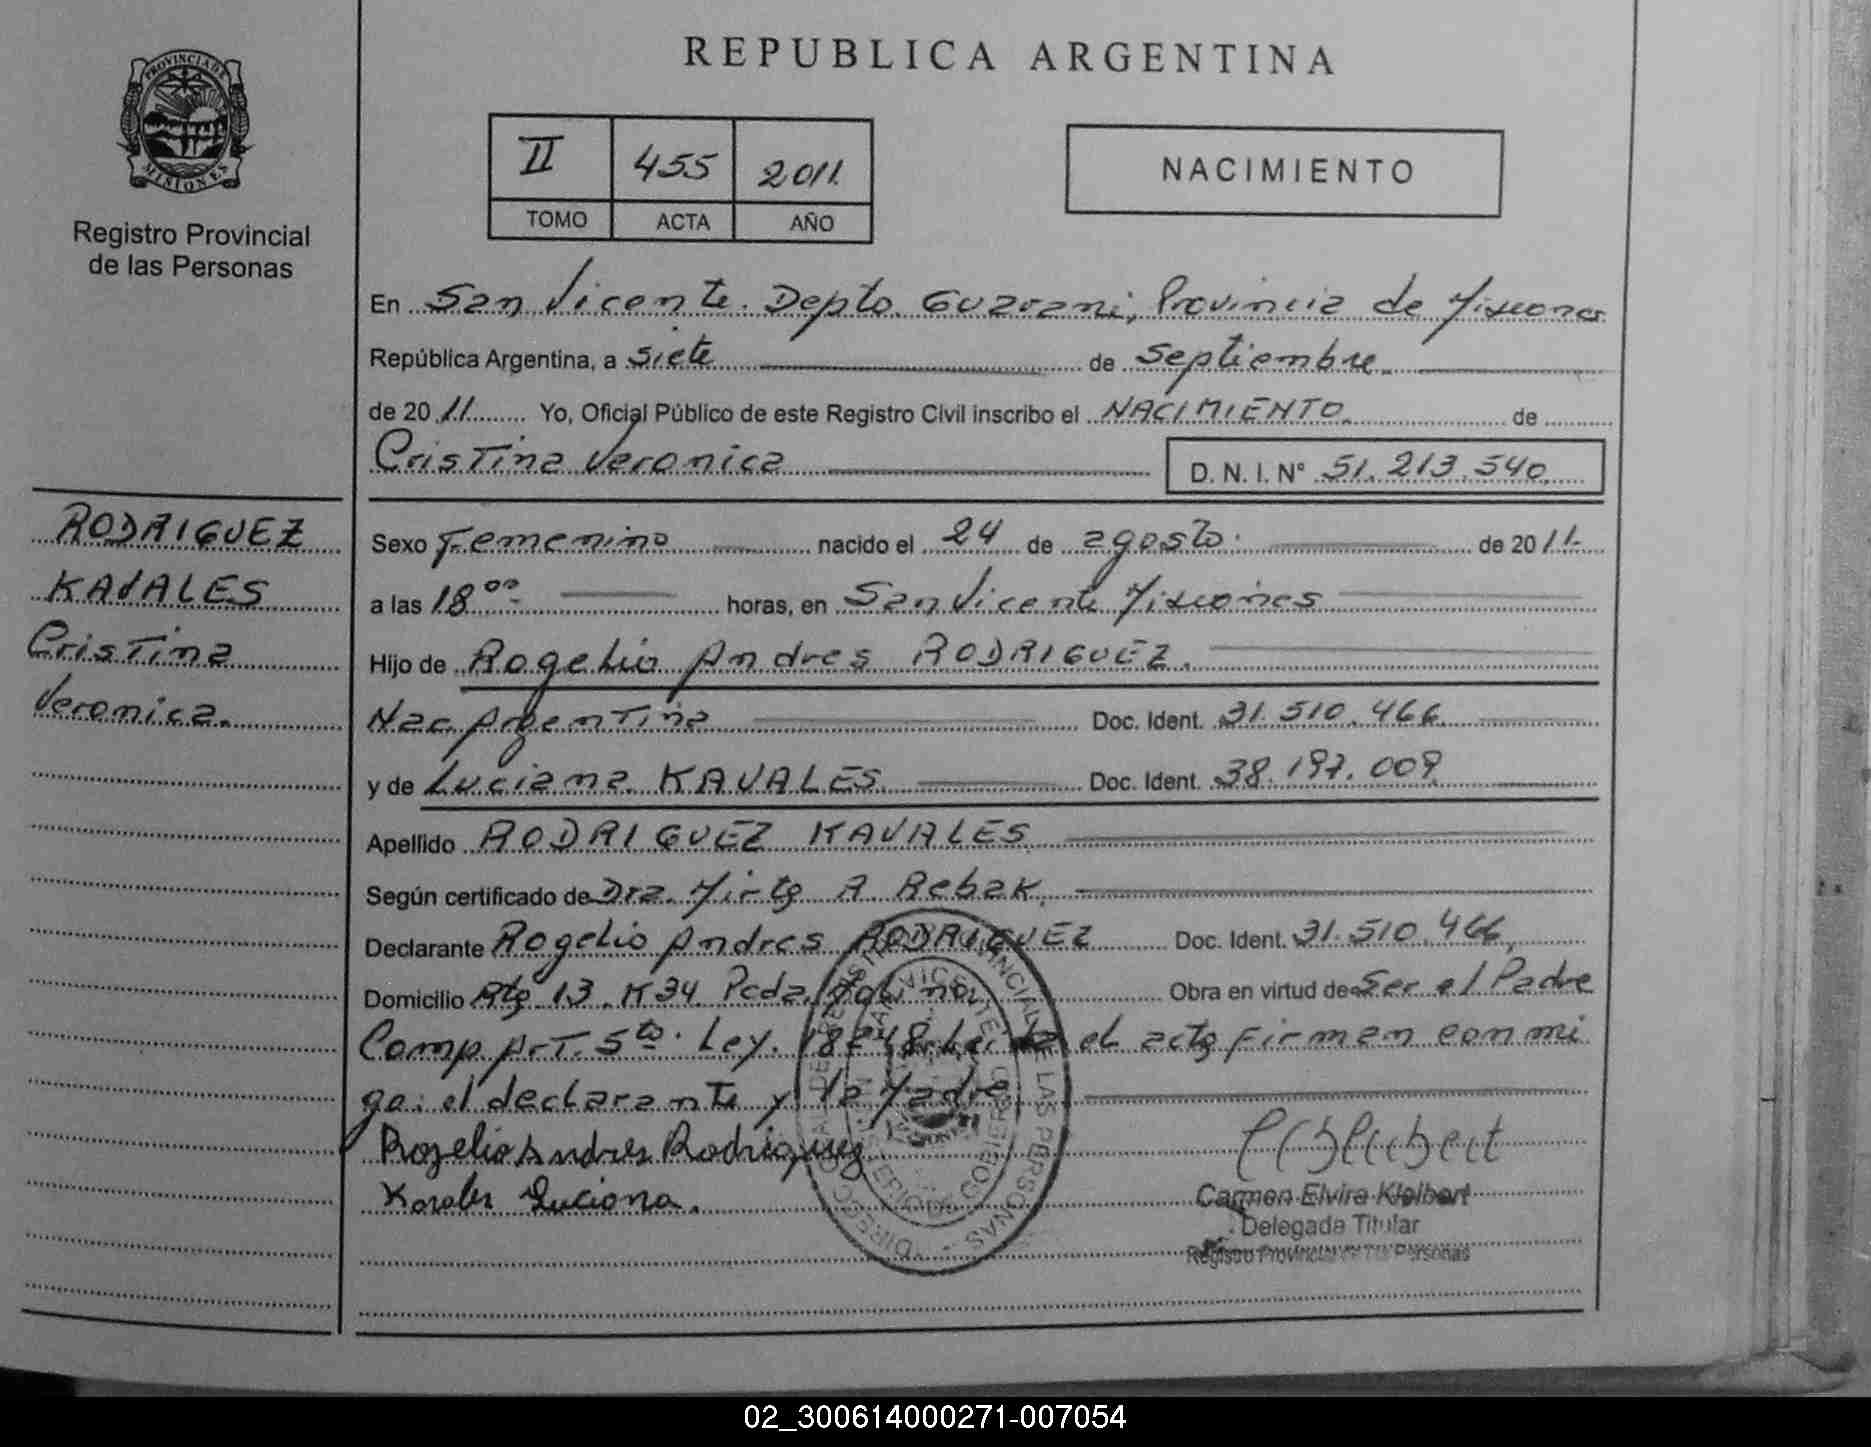 PROVINCIA DE
MISIONES
Registro Provincial
de las Personas
RODRIGUEZ
KAVALES
Cristina
Veronica.
REPUBLICA ARGENTINA
II 455 2011.
TOMO ACTA AÑO
NACIMIENTO
En San Vicente. Depto. Guarani, Provincia de Misiones
República Argentina, a siete de septiembre.
de 20 11 Yo, Oficial Público de este Registro Civil inscribo el NACIMIENTO. de
Cristina Veronica D. N. I. N° 51.213.540.
Sexo Femenino nacido el 24 de agosto. de 20 11.
a las 18⁰⁰ horas, en San Vicente Misiones
Hijo de Rogelio Andres RODRIGUEZ.
Nac. Argentina Doc. Ident. 31.510.466
y de Luciana KAVALES Doc. Ident. 38.197.009
Apellido RODRIGUEZ KAVALES
Según certificado de Dra. Mirta R. Rebak.
Declarante Rogelio Andres RODRIGUEZ Doc. Ident. 31.510.466,
Domicilio Rta 13. K34 Pcda. Obra en virtud de Ser el Padre
Comp. Art. 5to. Ley. 18248. el acta firman conmi
go: el declarante y la Madre
Rogelio Andres Rodriguez
Kavales Luciana.
Carmen Elvira Kleibert
Delegada Titular
Registro Provincial de las Personas
02_300614000271-007054